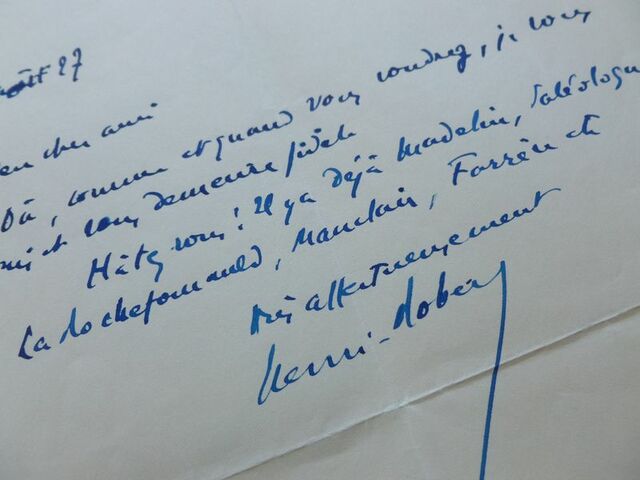 août 27
en cher ami
Où, comme et quand vous voudrez, je vous
suis et vous demeure fidèle
Hâtez vous! Il y a déjà Madelin, Paléologue
La Rochefoucauld, Mauclair, Farrère etc
Très affectueusement
Henri-Robert